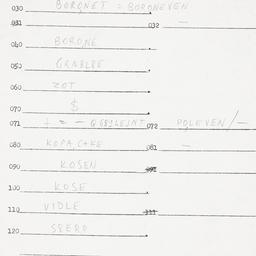 030 BORONET = BORONEVEN
031 032 —
040 BORONE
050 GRABLBE
060 ZOT
070 $
071 + = — 072 POLEVEN/—
080 KOPACKE 081 —
090 KOSEN 091
100 KOSE
110 VIDLE 111
120 SSERP